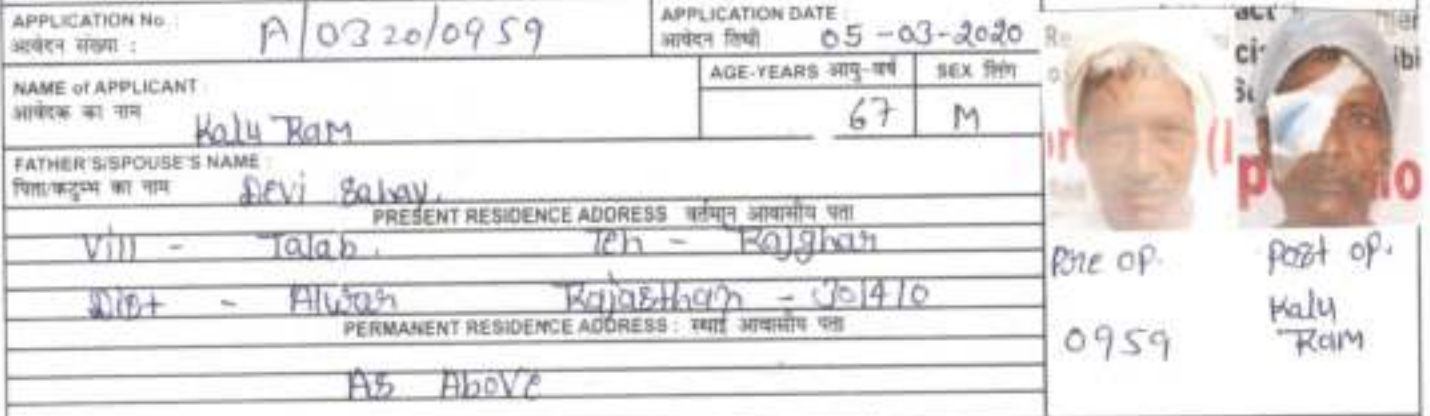 APPLICATION No. :
आवेदन संख्या :
A/0320/0959
APPLICATION DATE :
आवेदन तिथी
05-03-2020
NAME of APPLICANT :
आवेदक का नाम
Kalu Ram
AGE-YEARS आयु-वर्ष
67
SEX लिंग
M
FATHER'S/SPOUSE'S NAME :
पिता/कटुम्भ का नाम
Devi Sahay.
PRESENT RESIDENCE ADDRESS वर्तमान आवासीय पता
Vill - Talab. Teh - Rajghar
Dist - Alwar Rajasthan - 301410
PERMANENT RESIDENCE ADDRESS : स्थाई आवासीय पता
As Above
Pre op.
Post op.
0959
Kalu
Ram